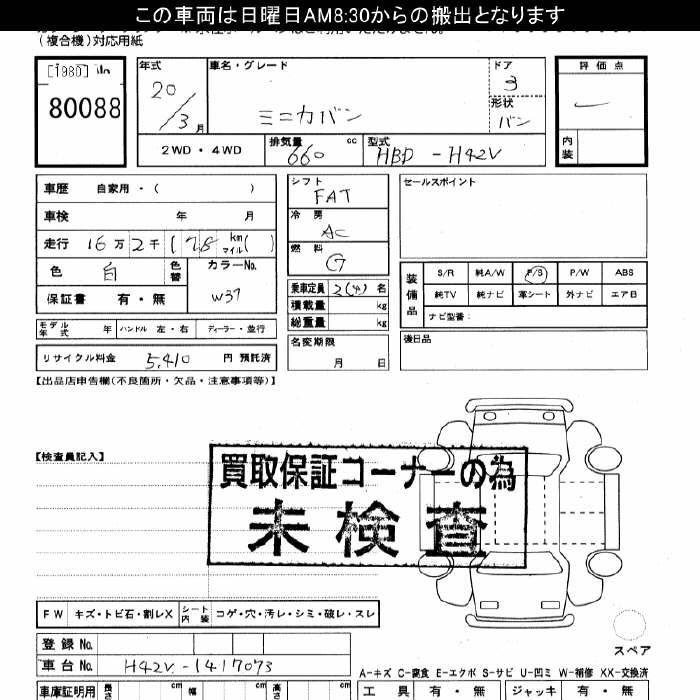 この車両は日曜日AM8:30からの搬出となります
(複合機)対応用紙
[1980]
80088
年式
20/3月
車名・グレード
ミニカバン
ドア
3
形状
バン
評価点
内装
2WD・4WD
排気量
660 cc
型式
HBD-H42V
車歴 自家用・( )
車検 年 月
走行 16万2千(78 km マイル( )
色 白 色替
カラーNo.
W37
保証書 有・無
シフト
FAT
冷房
AC
燃料
G
乗車定員 2(4) 名
積載量 kg
総重量 kg
名変期限
月 日
セールスポイント
装備品
S/R 純A/W P/S P/W ABS
純TV 純ナビ 革シート 外ナビ エアB
ナビ型番:
後日品
モデル年式 年 ハンドル 左・右 ディーラー・並行
リサイクル料金 5,410 円 預託済
【出品店申告欄(不良箇所・欠品・注意事項等)】
【検査員記入】
買取保証コーナーの為
未検査
FW キズ・トビ石・割レX シート内装 コゲ・穴・汚レ・シミ・破レ・スレ
スペア
登録No.
車台No. H42V-1417073
A-キズ C-腐食 E-エクボ S-サビ U-凹ミ W-補修 XX-交換済
車庫証明用 長さ cm 幅 cm 高さ cm
工具 有・無 ジャッキ 有・無